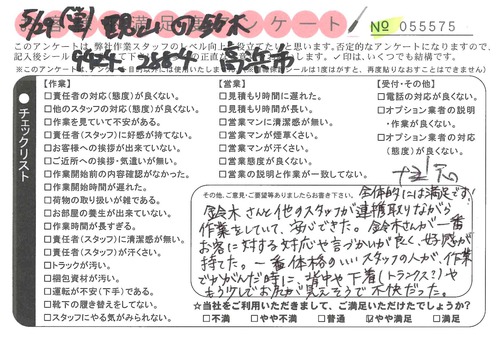 お客様満足度アンケート
№ 055575
5/29(金) 亀山の鈴木
9424.2684 高浜市
このアンケートは、弊社作業スタッフのレベル向上に役立てたいと思います。否定的なアンケートになりますので、
※このアンケートは、
【作業】
□責任者の対応(態度)が良くない。
□他のスタッフの対応(態度)が良くない。
□作業を見ていて不安がある。
□責任者(スタッフ)に好感が持てない。
□お客様への挨拶が出来ていない。
□ご近所への挨拶・気遣いが無い。
□作業開始前の内容確認がなかった。
□作業開始時間が遅れた。
□荷物の取り扱いが雑である。
□お部屋の養生が出来ていない。
□作業時間が長すぎる。
□責任者(スタッフ)に清潔感が無い。
□責任者(スタッフ)が汗くさい。
□トラックが汚い。
□梱包資材が汚い。
□運転が不安(下手)である。
□靴下の履き替えをしてない。
□スタッフにやる気がみられない。
【営業】
□見積もり時間に遅れた。
□見積もり時間が長い。
□営業マンに清潔感が無い。
□営業マンが煙草くさい。
□営業マンが汗くさい。
□営業態度が良くない。
□営業の説明と作業が一致してない。
【受付・その他】
□電話の対応が良くない。
□オプション業者の説明
・作業が良くない。
□オプション業者の対応
(態度)が良くない。
チェックリスト
その他、ご意見・ご要望等ありましたらお書き下さい。
全体的には満足です!
鈴木さんと他のスタッフが連携取りながら
作業をしていて、安心できた。鈴木さんが一番
お客に対する対応や言葉づかいが良く、好感が
持てた。一番体格のいいスタッフの人が、作業
でかがんだ時に、背中や下着(トランクス?)や
もう少しでお尻が見えそうで不快だった。
☆当社をご利用いただきまして、ご満足いただけたでしょうか?
□不満 □やや不満 □普通 ☑やや満足 □満足